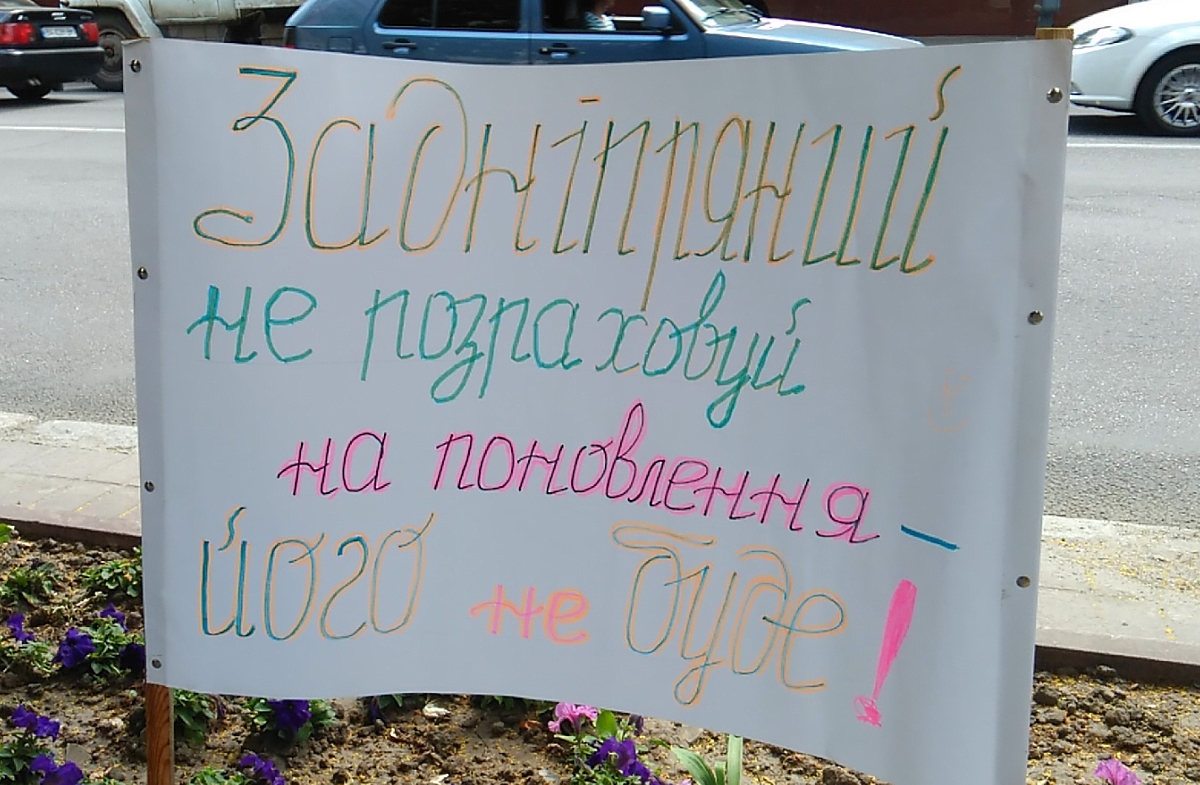 Задніпряний
не розраховуй
на поновлення –
його не буде!